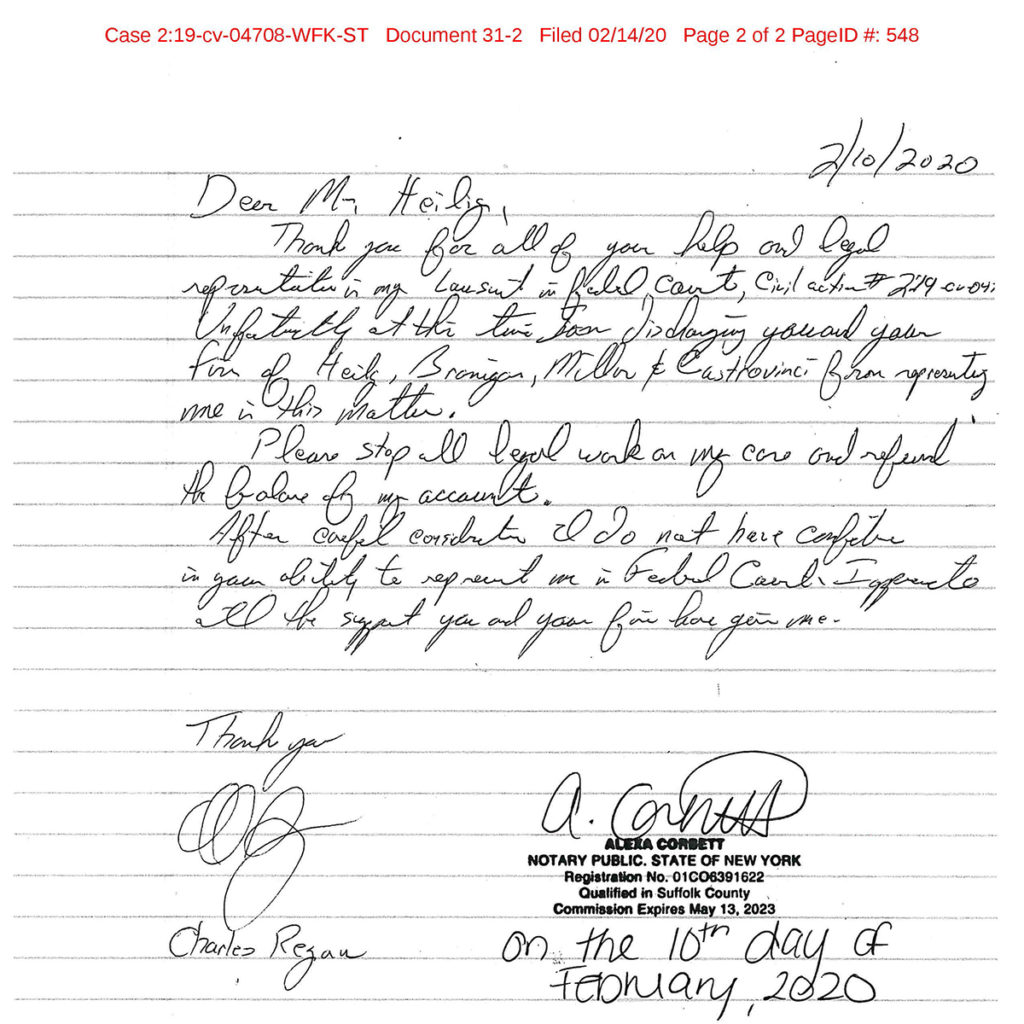 Case 2:19-cv-04708-WFK-ST Document 31-2 Filed 02/14/20 Page 2 of 2 PageID #: 548
2/10/2020
Dear Mr, Heilig,
Thank you for all of your help and legal
in my Lawsuit in Fedel Court, Civil action # 2:19-cv-04
at this time I am discharging you and your
firm of Heilig, Branigan, Miller & Castrovinci from representing
me in this matter.
Please stop all legal work on my case and refund
the balance of my account.
After careful consideration I do not have confidence
in your ability to represent me in Federal Court. I appreciate
all the support you and your firm have given me.
Thank you
A. Corbett
ALEXA CORBETT
NOTARY PUBLIC. STATE OF NEW YORK
Registration No. 01CO6391622
Qualified in Suffolk County
Commission Expires May 13, 2023
Charles Regan
on the 10th day of
February, 2020